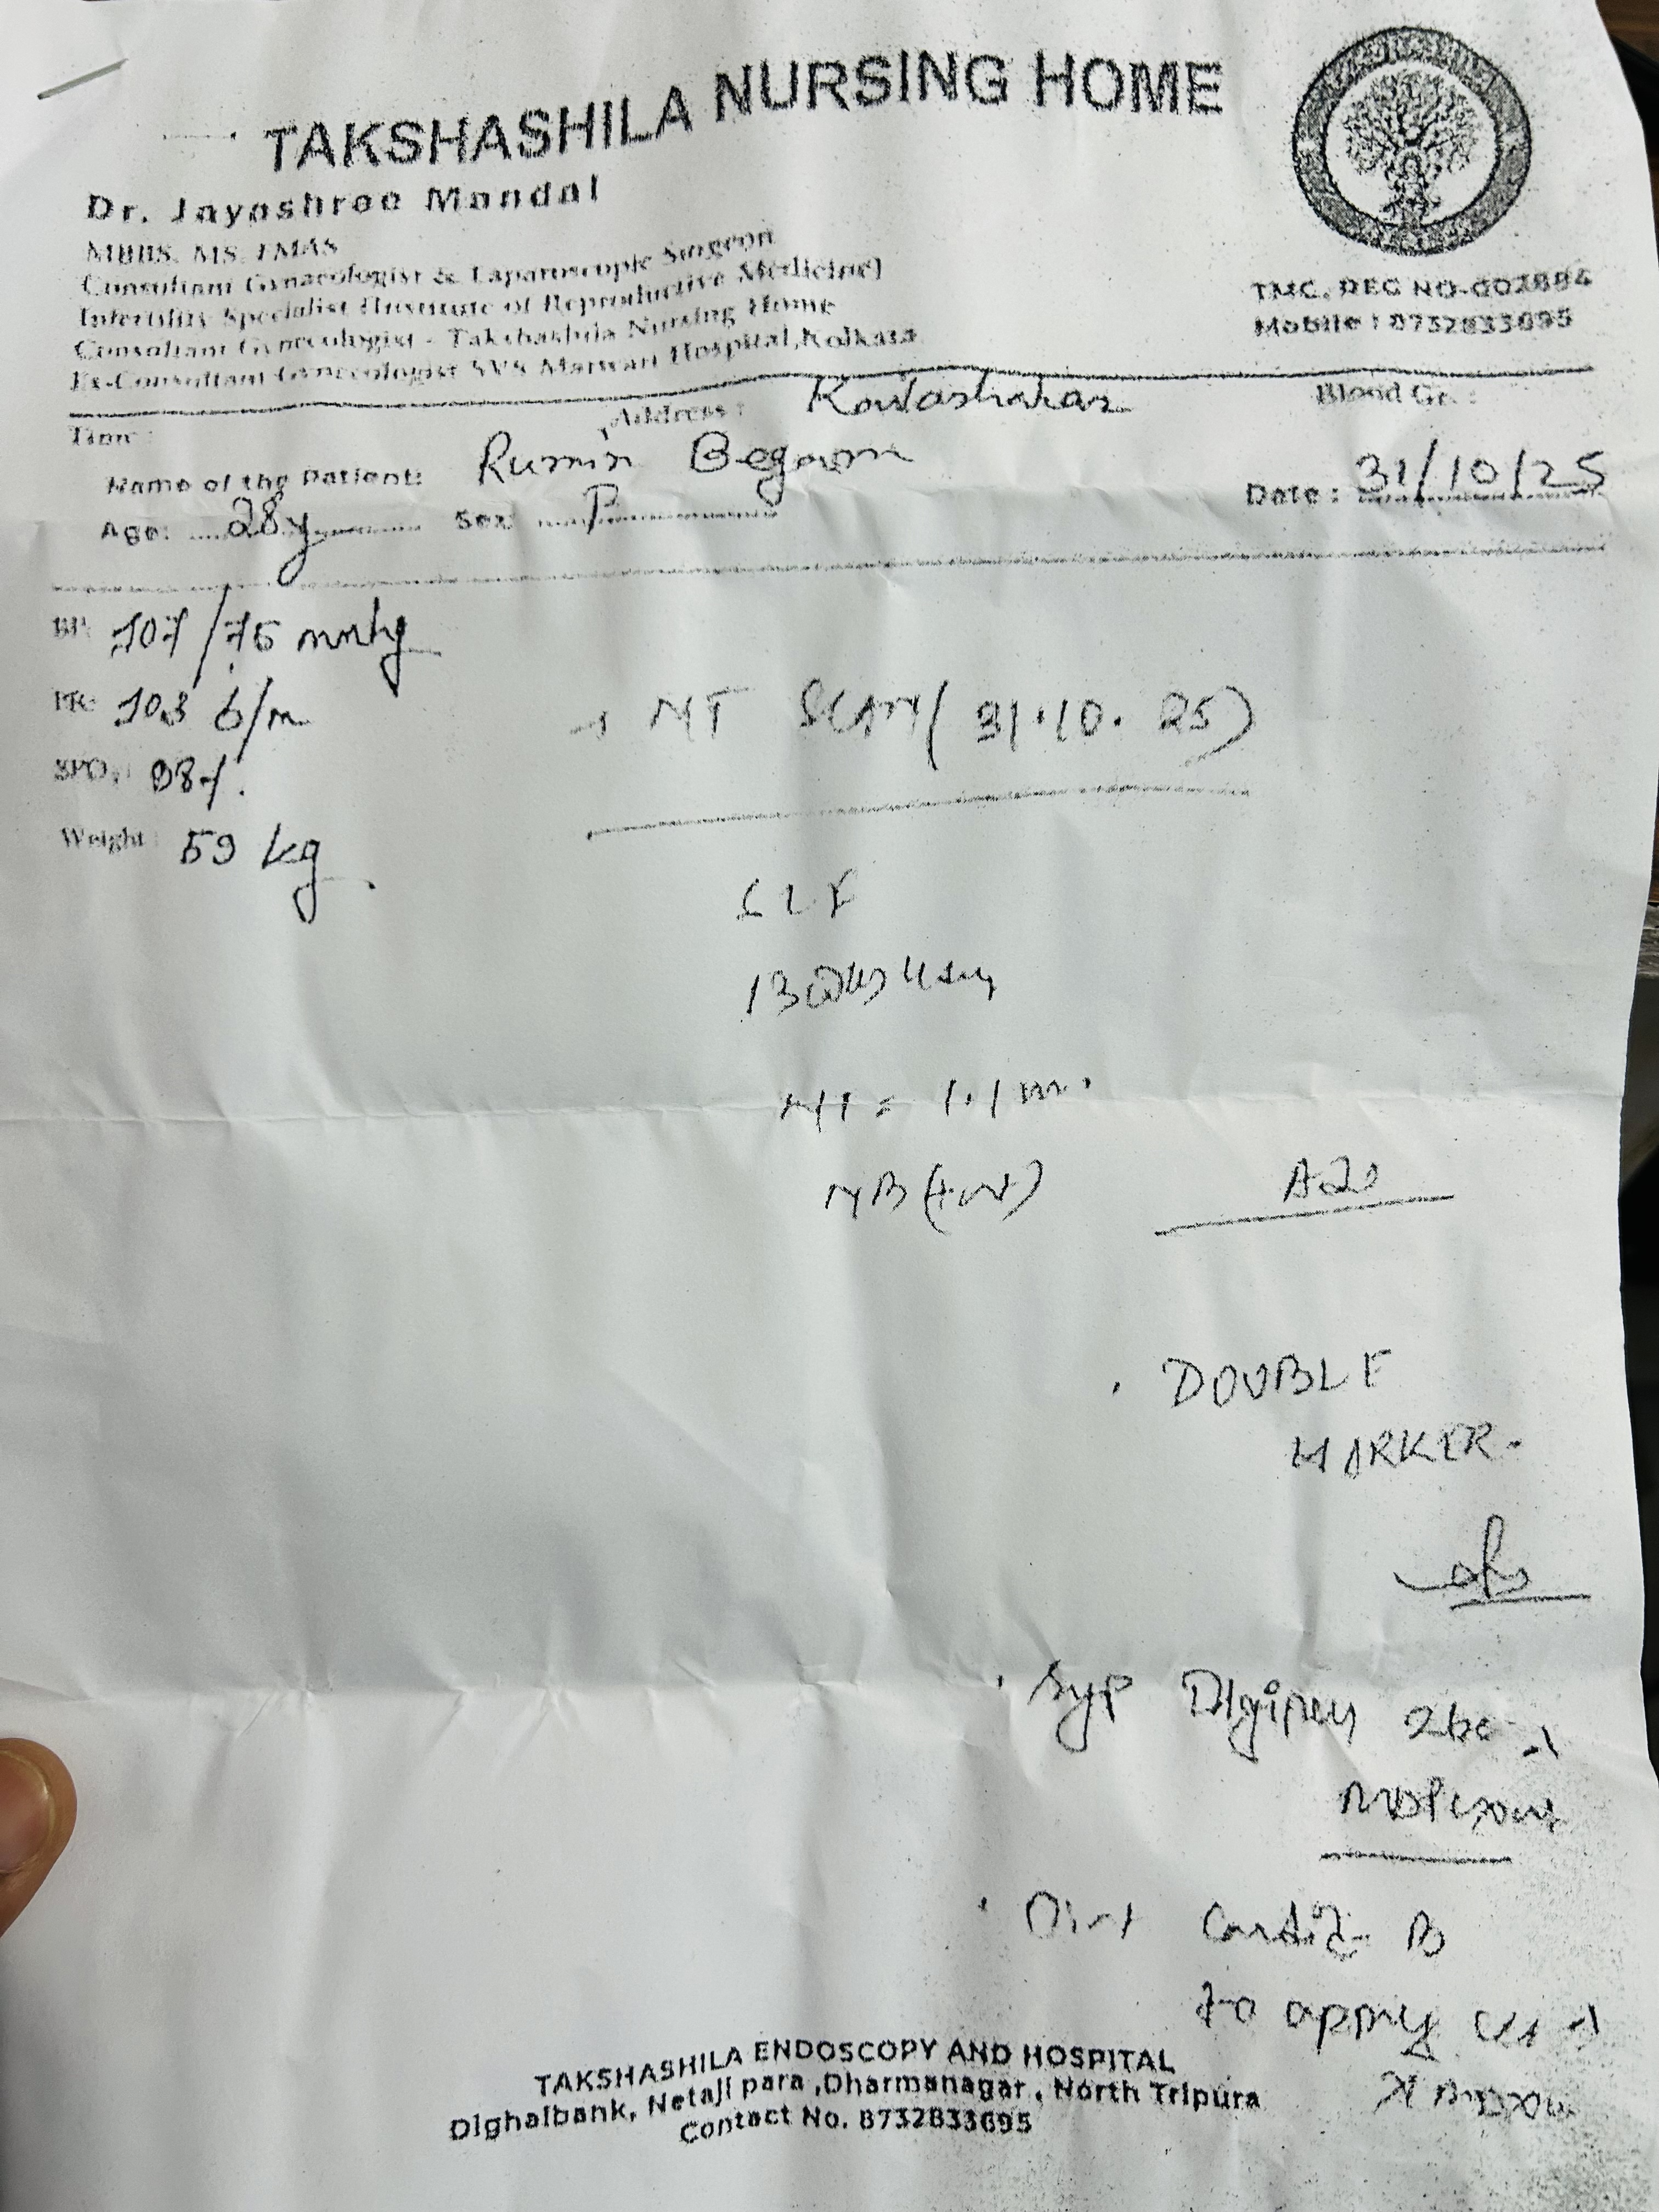 TAKSHASHILA NURSING HOME
Dr. Jayashree Mandal
MBBS, MS, FMAS
Consultant Gynaecologist & Laparoscopic Surgeon
Infertility Specialist (Institute of Reproductive Medicine)
Consultant Gynecologist - Takshashila Nursing Home
Ex-Consultant Gynecologist SVS Marwari Hospital, Kolkata
TMC. REG NO-002884
Mobile : 8732833695
Time :
Address :
Blood Gr. :
Name of the Patient: Rumin Begom
Date : 31/10/25
Age: 28y Sex: F
BP: 107/75 mmhg
PR: 103 b/m
SPO2: 98%.
Weight: 59 kg
NT SCAN (31.10.25)
SLF
NT = 1.1 mm.
NB (+ve)
DOUBLE
MARKER.
Syp
Oint Candid-B
to apply
TAKSHASHILA ENDOSCOPY AND HOSPITAL
Dighalbank, Netaji para ,Dharmanagar, North Tripura
Contact No. 8732833695